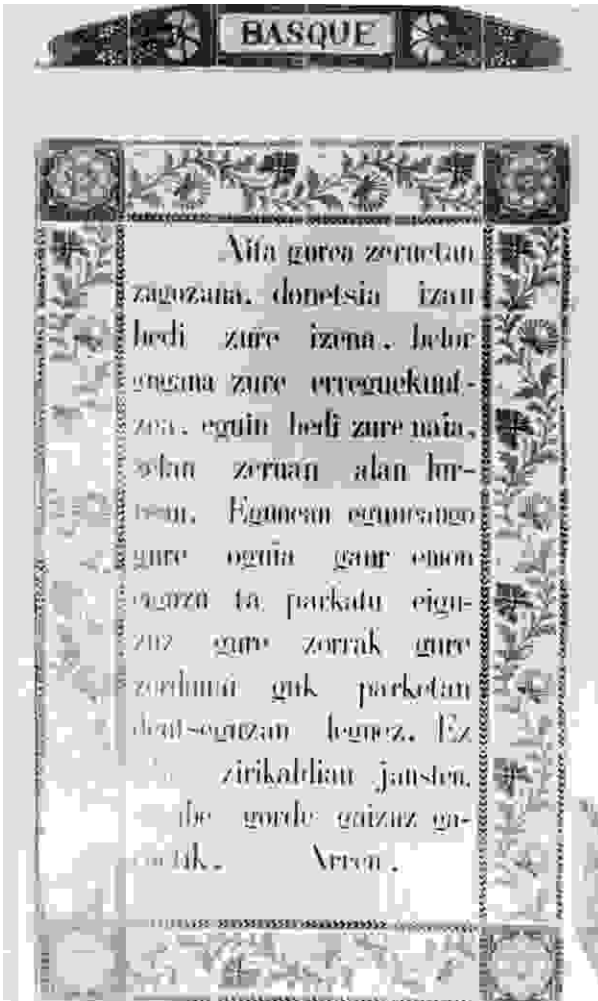 BASQUE
Aita gurea zeruetan
zagozana, donetsia izan
bedi zure izena, betor
gugana zure erreguekunt-
zea, eguin bedi zure naia,
zelan zeruan alan lur-
rean. Egunean egunerango
gure oguia gaur emon
eiguzu ta parkatu eigu-
zuz gure zorrak gure
zordunai guk parketan
deutseguzan leguez. Ez
zirikaldian jausten,
gorde gaizuz ga-
Arren.